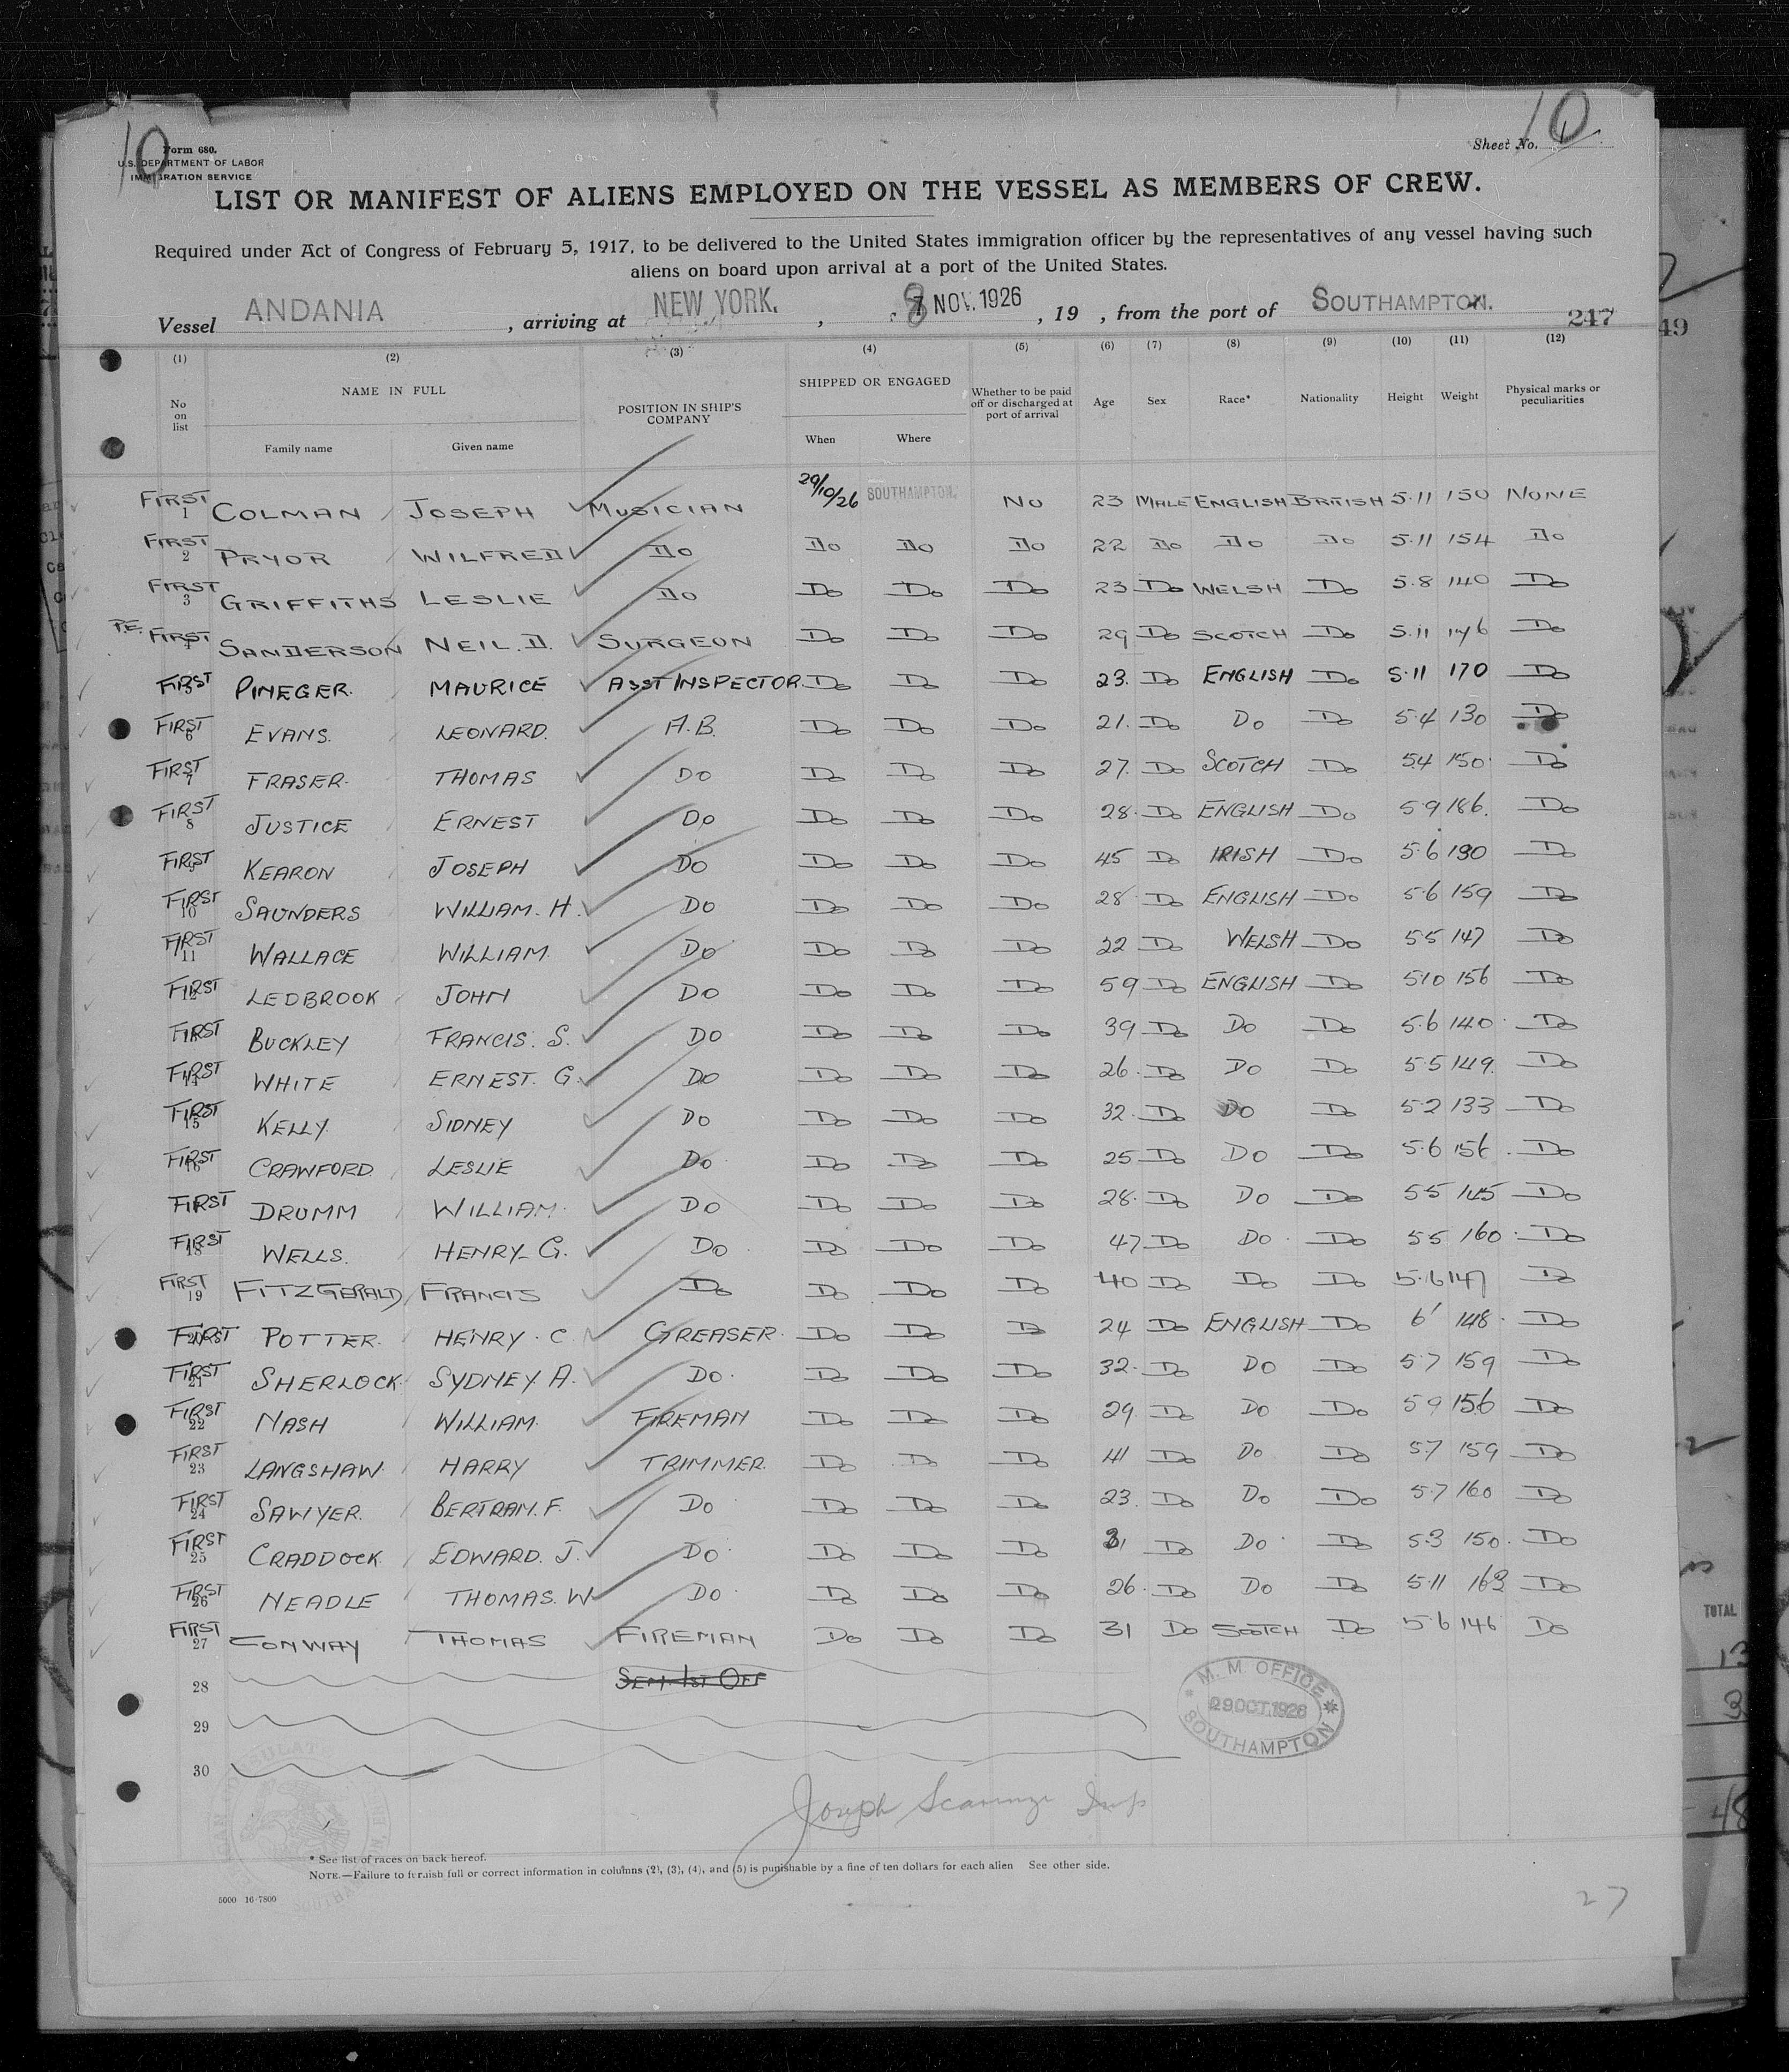 10
10
Form 680.
U.S. DEPARTMENT OF LABOR
IMMIGRATION SERVICE
Sheet No. 1
LIST OR MANIFEST OF ALIENS EMPLOYED ON THE VESSEL AS MEMBERS OF CREW.
Required under Act of Congress of February 5, 1917, to be delivered to the United States immigration officer by the representatives of any vessel having such
aliens on board upon arrival at a port of the United States.
Vessel ANDANIA, arriving at NEW YORK., 8 NOV. 1926, 19 , from the port of SOUTHAMPTON.
247
49
(1) (2) (3) (4) (5) (6) (7) (8) (9) (10) (11) (12)
No on list NAME IN FULL POSITION IN SHIP'S COMPANY SHIPPED OR ENGAGED Whether to be paid off or discharged at port of arrival Age Sex Race* Nationality Height Weight Physical marks or peculiarities
Family name Given name When Where
FIRST 1 COLMAN JOSEPH MUSICIAN 29/10/26 SOUTHAMPTON. NO 23 MALE ENGLISH BRITISH 5.11 150 NONE
FIRST 2 PRYOR WILFRED DO DO DO DO 22 DO DO DO 5.11 154 DO
FIRST 3 GRIFFITHS LESLIE DO DO DO DO 23 DO WELSH DO 5.8 140 DO
P.E. FIRST SANDERSON NEIL. D. SURGEON DO DO DO 29 DO SCOTCH DO 5.11 146 DO
FIRST 5 PINEGER. MAURICE ASST INSPECTOR. DO DO DO 23. DO ENGLISH DO 5.11 170 DO
FIRST 6 EVANS. LEONARD. A.B. DO DO DO 21. DO DO DO 5.4 130 DO
FIRST 7 FRASER. THOMAS DO DO DO DO 27. DO SCOTCH DO 5.4 150 DO
FIRST 8 JUSTICE ERNEST DO DO DO DO 28. DO ENGLISH DO 5.9 186. DO
FIRST 9 KEARON JOSEPH DO DO DO DO 45 DO IRISH DO 5.6 190 DO
FIRST 10 SAUNDERS WILLIAM. H. DO DO DO DO 28 DO ENGLISH DO 5.6 159 DO
FIRST 11 WALLACE WILLIAM. DO DO DO DO 22 DO WELSH DO 5.5 147 DO
FIRST 12 LEDBROOK JOHN DO DO DO DO 59 DO ENGLISH DO 5.10 156 DO
FIRST 13 BUCKLEY FRANCIS. S. DO DO DO DO 39 DO DO DO 5.6 140 DO
FIRST 14 WHITE ERNEST. G. DO DO DO DO 26. DO DO DO 5.5 149. DO
FIRST 15 KELLY. SIDNEY DO DO DO DO 32. DO DO DO 5.2 133 DO
FIRST 16 CRAWFORD. LESLIE DO DO DO DO 25 DO DO DO 5.6 156. DO
FIRST 17 DRUMM WILLIAM. DO DO DO DO 28. DO DO DO 5.5 145 DO
FIRST 18 WELLS. HENRY. G. DO DO DO DO 47 DO DO DO 5.5 160. DO
FIRST 19 FITZGERALD FRANCIS DO DO DO DO 40 DO DO DO 5.6 147 DO
FIRST 20 POTTER. HENRY. C. GREASER. DO DO DO 24 DO ENGLISH DO 6' 148. DO
FIRST 21 SHERLOCK. SYDNEY. A. DO. DO DO DO 32. DO DO DO 5.7 159 DO
FIRST 22 NASH WILLIAM. FIREMAN DO DO DO 29. DO DO DO 5.9 156 DO
FIRST 23 LANGSHAW HARRY TRIMMER. DO DO DO 41 DO DO DO 5.7 159 DO
FIRST 24 SAWYER. BERTRAM. F. DO DO DO DO 23. DO DO DO 5.7 160 DO
FIRST 25 CRADDOCK. EDWARD. J. DO DO DO DO 31 DO DO DO 5.3 150. DO
FIRST 26 NEADLE THOMAS. W DO DO DO DO 26. DO DO DO 5.11 163 DO
FIRST 27 CONWAY THOMAS FIREMAN DO DO DO 31 DO SCOTCH DO 5.6 146 DO
28 SEM. 1ST OFF
29
30
M. M. OFFICE
29 OCT. 1926
SOUTHAMPTON
Joseph Insp
* See list of races on back hereof.
NOTE.—Failure to furnish full or correct information in columns (2), (3), (4), and (5) is punishable by a fine of ten dollars for each alien See other side.
5000 16-7800
27
TOTAL
13
3
48